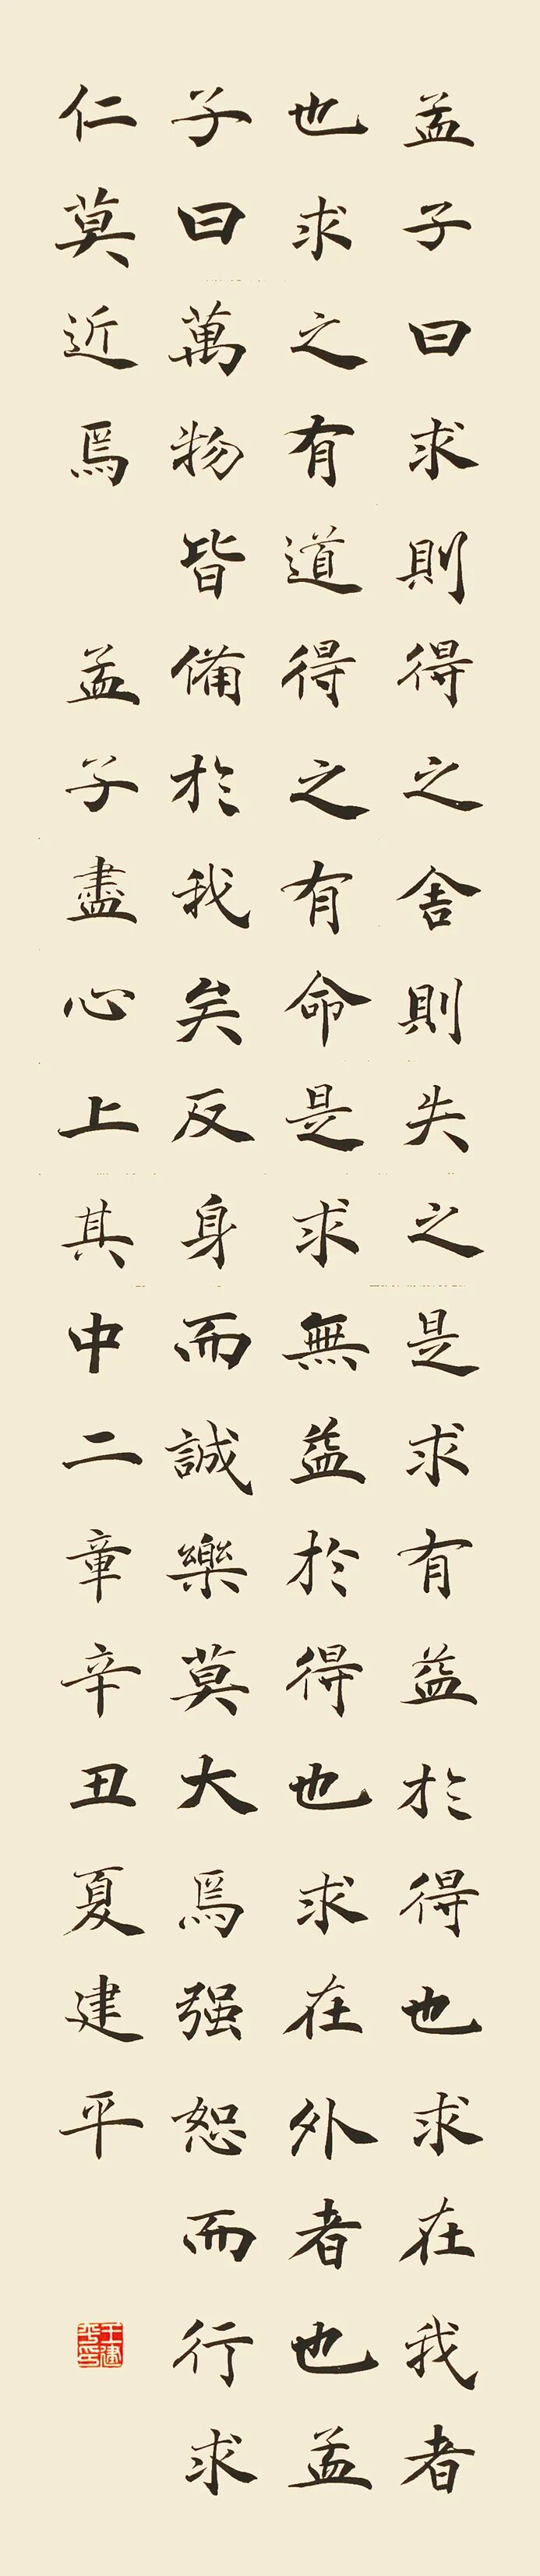 孟子曰求則得之舍則失之是求有益於得也求在我者
也求之有道得之有命是求無益於得也求在外者也孟
子曰萬物皆備於我矣反身而誠樂莫大焉强恕而行求
仁莫近焉
孟子盡心上其中二章辛丑夏建平
王建平印